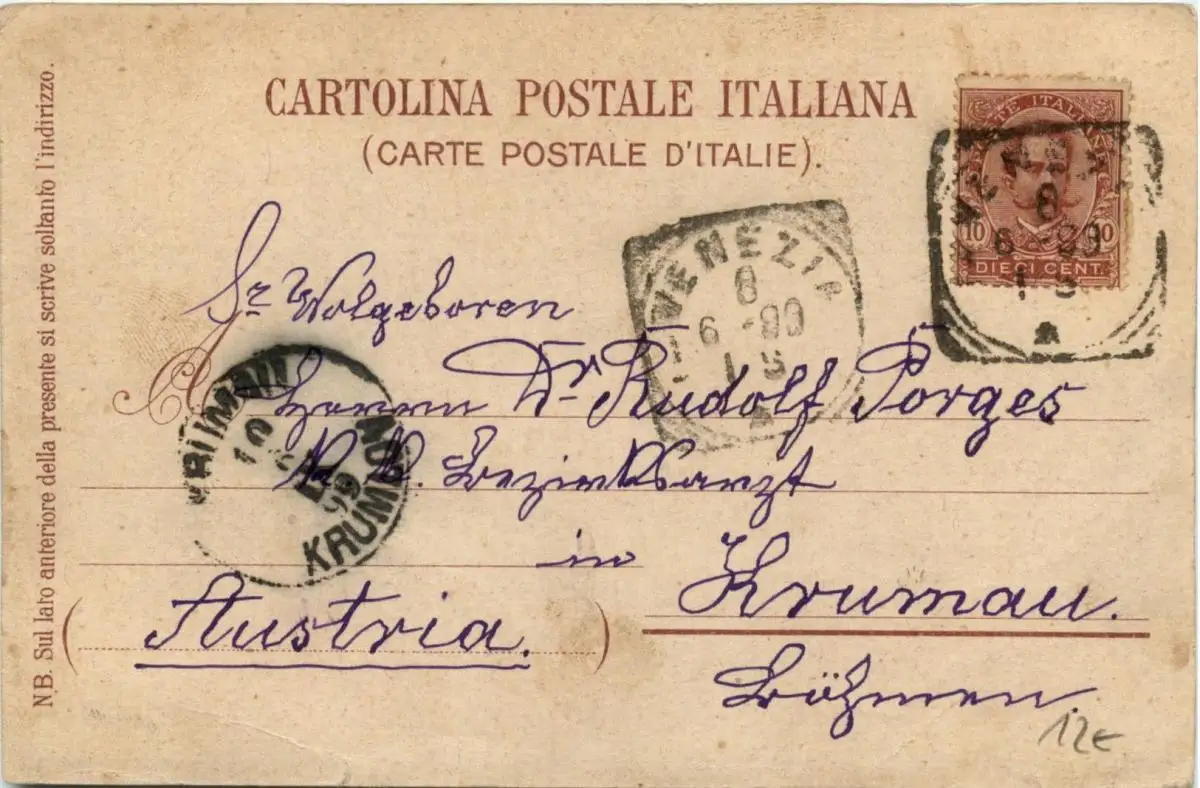 CARTOLINA POSTALE ITALIANA
(CARTE POSTALE D'ITALIE).
POSTE ITALIANE
10 10
DIECI CENT.
VENEZIA
8
6 -99
1 S
VENEZIA
8
6 -99
1 S
Sr Wolgeboren
A
Herrn Dr Rudolf Porges
K. K. Bezirksarzt
in Krumau.
(Austria.)
Böhmen
KRUMAU
10
99
KRUMLOV
12€
N.B. Sul lato anteriore della presente si scrive soltanto l'indirizzo.